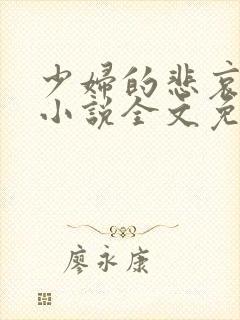 少婦的悲哀
小說全文免
廖永康